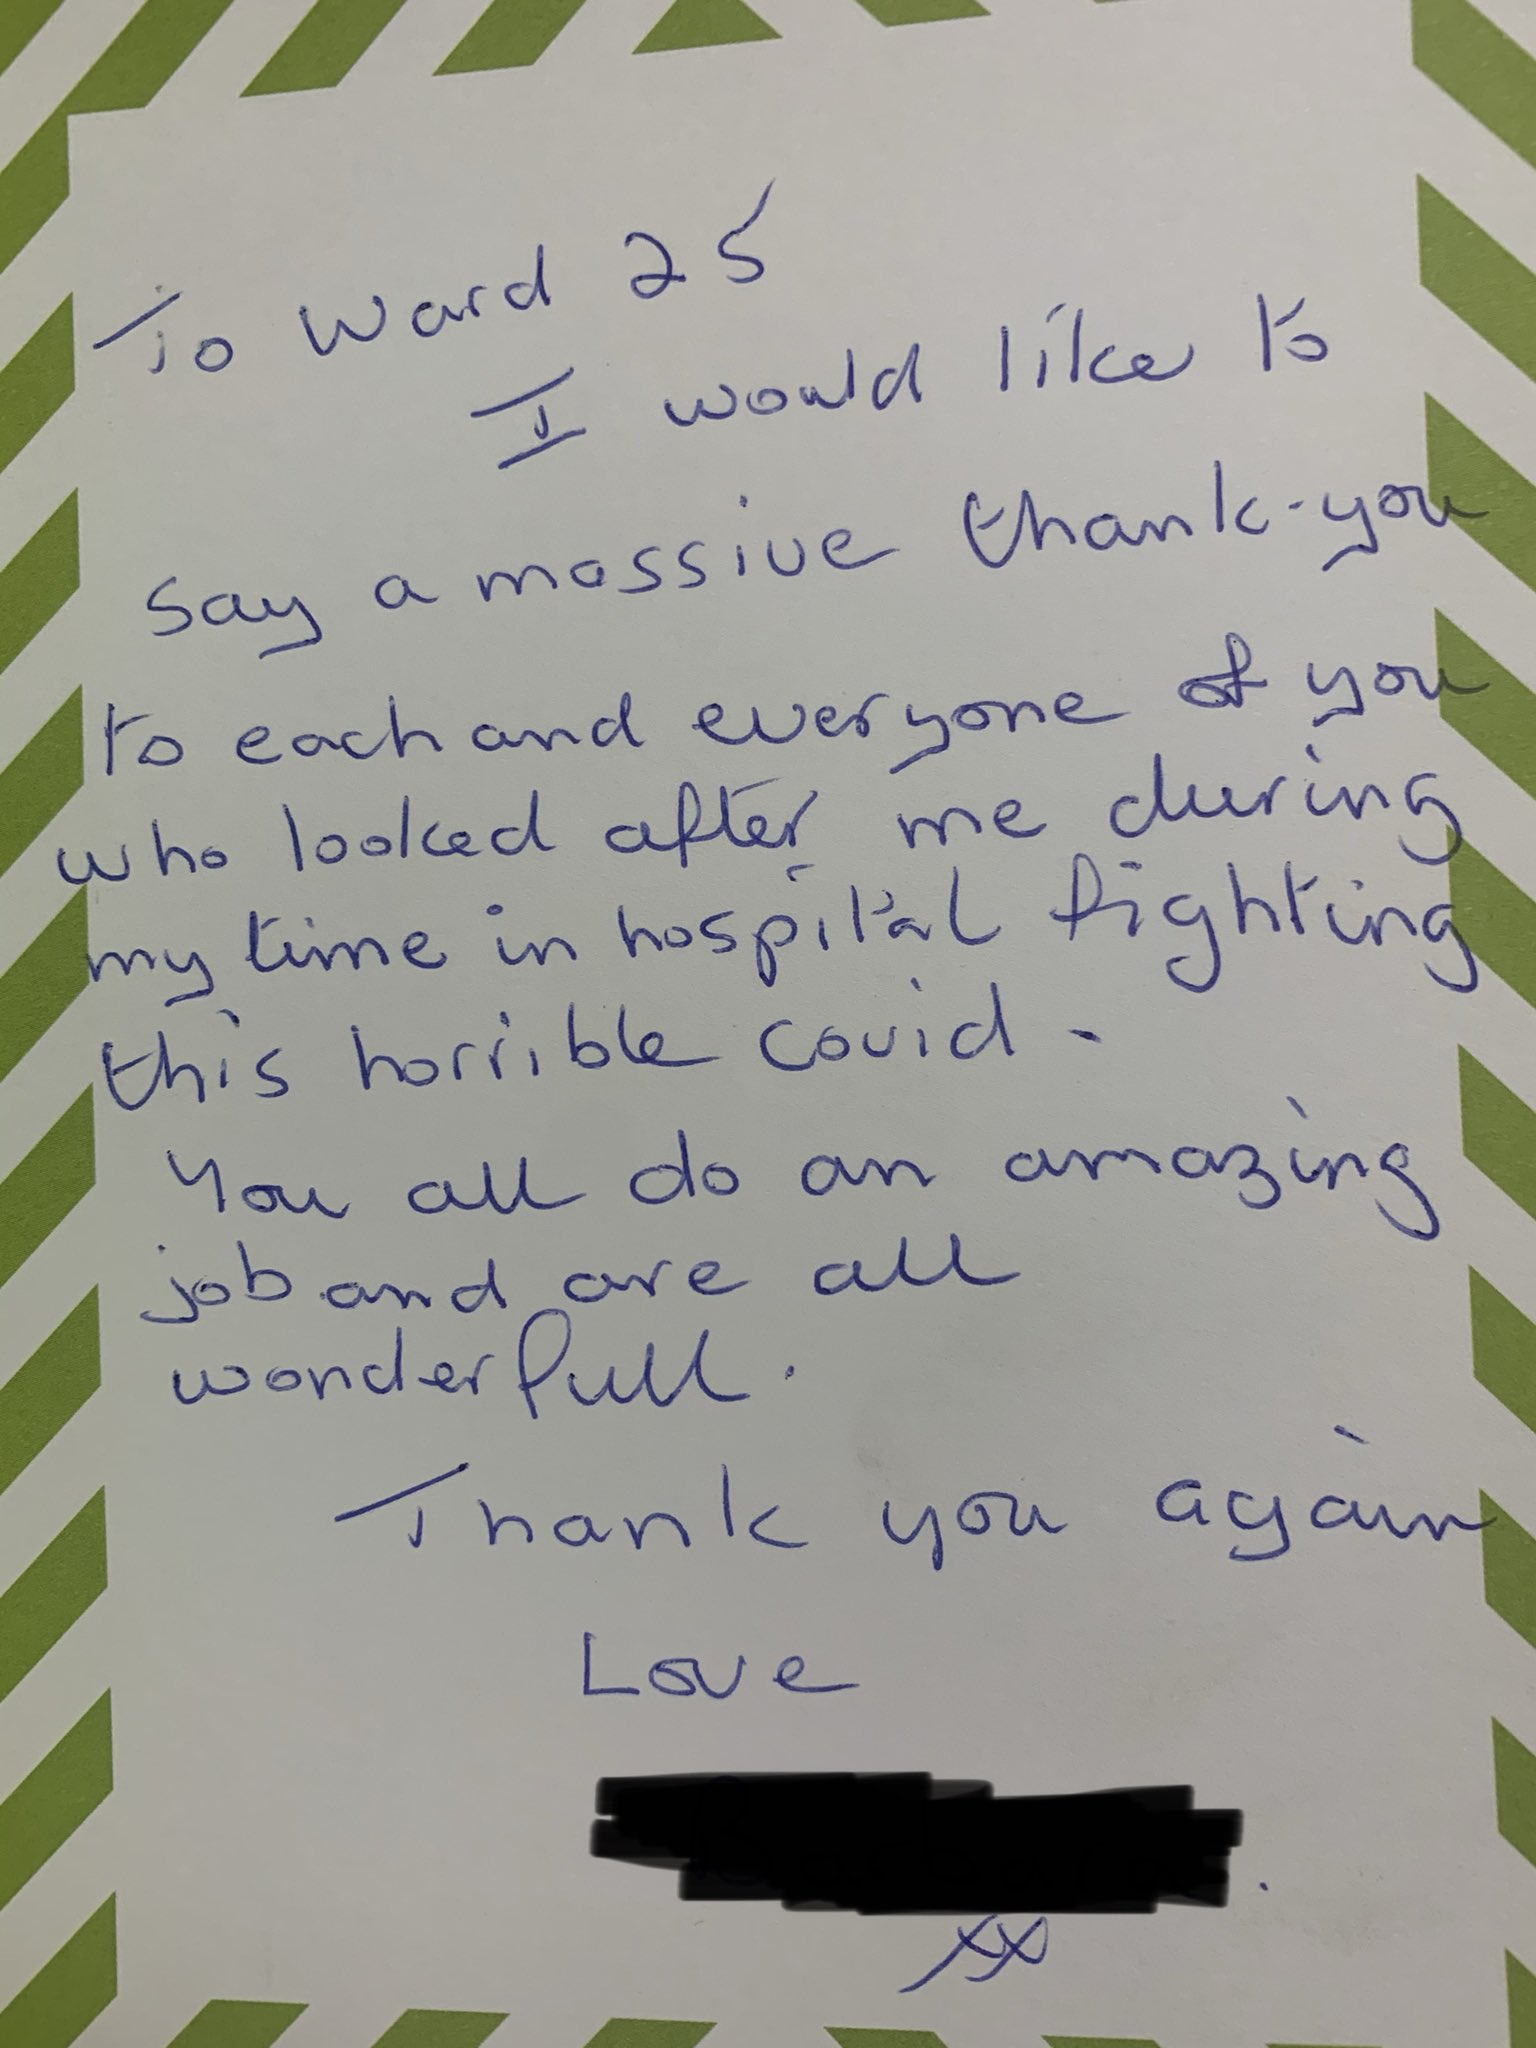 To Ward 25
I would like to
say a massive thank-you
to each and everyone of you
who looked after me during
my time in hospital fighting
this horrible covid.
You all do an amazing
job and are all
wonderfull.
Thank you again
Love
xx